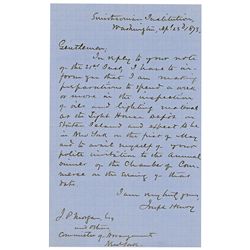 Smithsonian Institution,
Washington, Ap. 23d, 1873.
Gentlemen,
In reply to your note
of the 21st Inst, I have to in-
form you that I am making
preparations to spend a week
or more in the inspection
of oils and lighting material
at the Light House Depot on
Staten Island and expect to be
in New York on the first of May
and to avail myself of your
polite invitation to the annual
dinner of the Chamber of Com-
merce on the evening of that
date.
I am very truly yours,
Joseph Henry
J P Morgan Esq
and others
Committee of Arrangements
New York